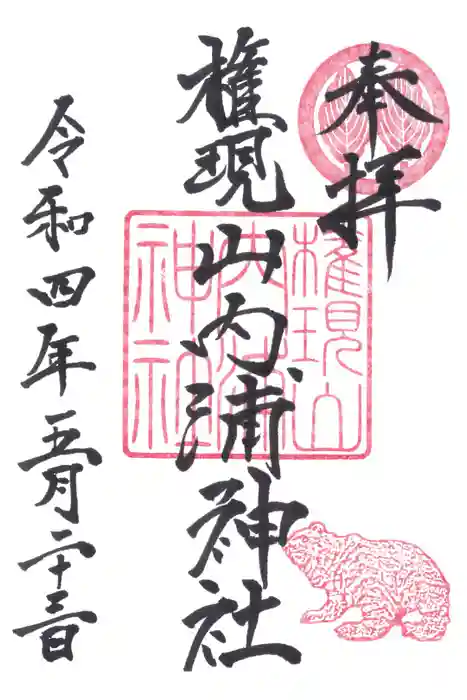 奉拝
権現山内浦神社
令和四年五月二十三日
權現山
内浦
神社